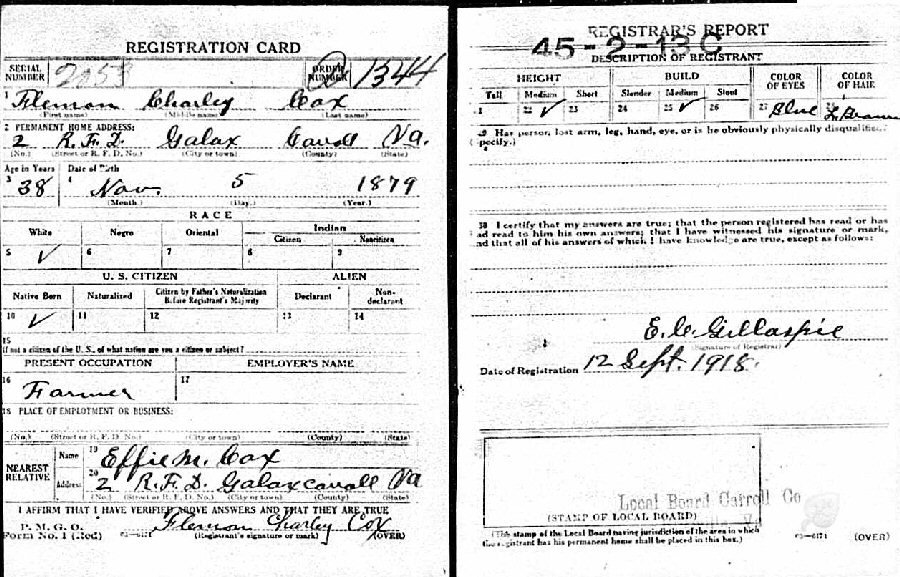 REGISTRATION CARD
SERIAL NUMBER 2053 ORDER NUMBER 1344
1 Fleman Charley Cox
(First name) (Middle name) (Last name)
2 PERMANENT HOME ADDRESS:
2 R.F.D. Galax Carroll Va.
(No.) (Street or R. F. D. No.) (City or town) (County) (State)
Age in Years Date of Birth
3 38 4 Nov. 5 1879
(Month.) (Day.) (Year.)
RACE
White Negro Oriental Indian
Citizen Noncitizen
5 ✓ 6 7 8 9
U. S. CITIZEN ALIEN
Native Born Naturalized Citizen by Father's Naturalization Before Registrant's Majority Declarant Non-declarant
10 ✓ 11 12 13 14
15
If not a citizen of the U. S., of what nation are you a citizen or subject?
PRESENT OCCUPATION EMPLOYER'S NAME
16 Farmer 17
18 PLACE OF EMPLOYMENT OR BUSINESS:
(No.) (Street or R. F. D. No.) (City or town) (County) (State)
NEAREST RELATIVE Name 19 Effie M. Cox
Address 20 2 R.F.D. Galax Carroll Va
(No.) (Street or R. F. D. No.) (City or town) (County) (State)
I AFFIRM THAT I HAVE VERIFIED ABOVE ANSWERS AND THAT THEY ARE TRUE
P. M. G. O.
Form No. 1 (Red) Fleman Charley Cox
(Registrant's signature or mark) (OVER)
REGISTRAR'S REPORT
45-2-13 C
DESCRIPTION OF REGISTRANT
HEIGHT BUILD COLOR OF EYES COLOR OF HAIR
Tall Medium Short Slender Medium Stout
21 22 ✓ 23 24 25 ✓ 26 27 Blue Brown
29 Has person lost arm, leg, hand, eye, or is he obviously physically disqualified?
(specify.)
30 I certify that my answers are true; that the person registered has read or has
had read to him his own answers; that I have witnessed his signature or mark,
and that all of his answers of which I have knowledge are true, except as follows:
E. C. Gillaspie
(Signature of Registrar)
Date of Registration 12 Sept. 1918.
Local Board Carroll Co
(STAMP OF LOCAL BOARD)
(The stamp of the Local Board having jurisdiction of the area in which
the registrant has his permanent home shall be placed in this box.)
(OVER)